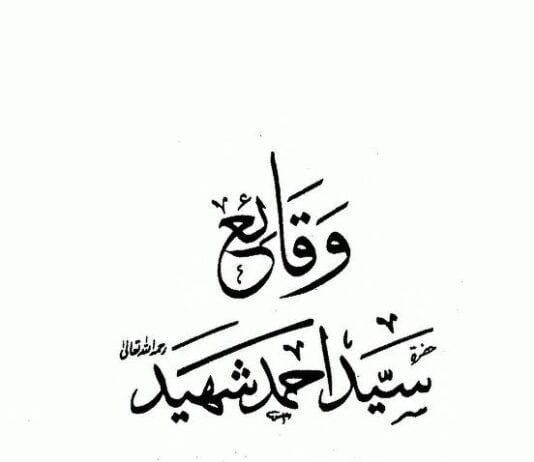 وقائع
حضرة سیّد احمد شہید رحمہ اللہ تعالیٰ